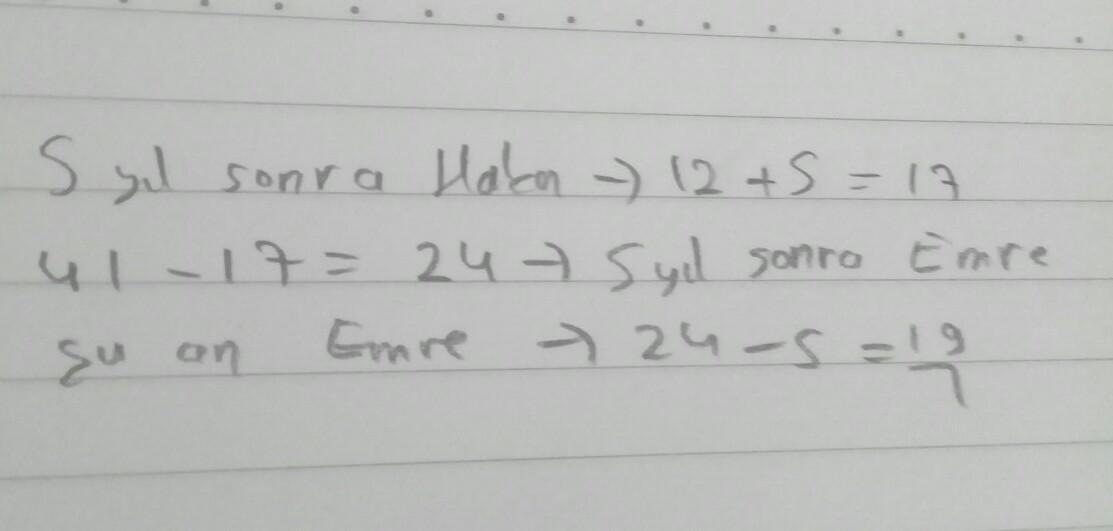 5 yıl sonra Hakan → 12 + 5 = 17
41 - 17 = 24 → 5 yıl sonra Emre
Şu an Emre → 24 - 5 = 19